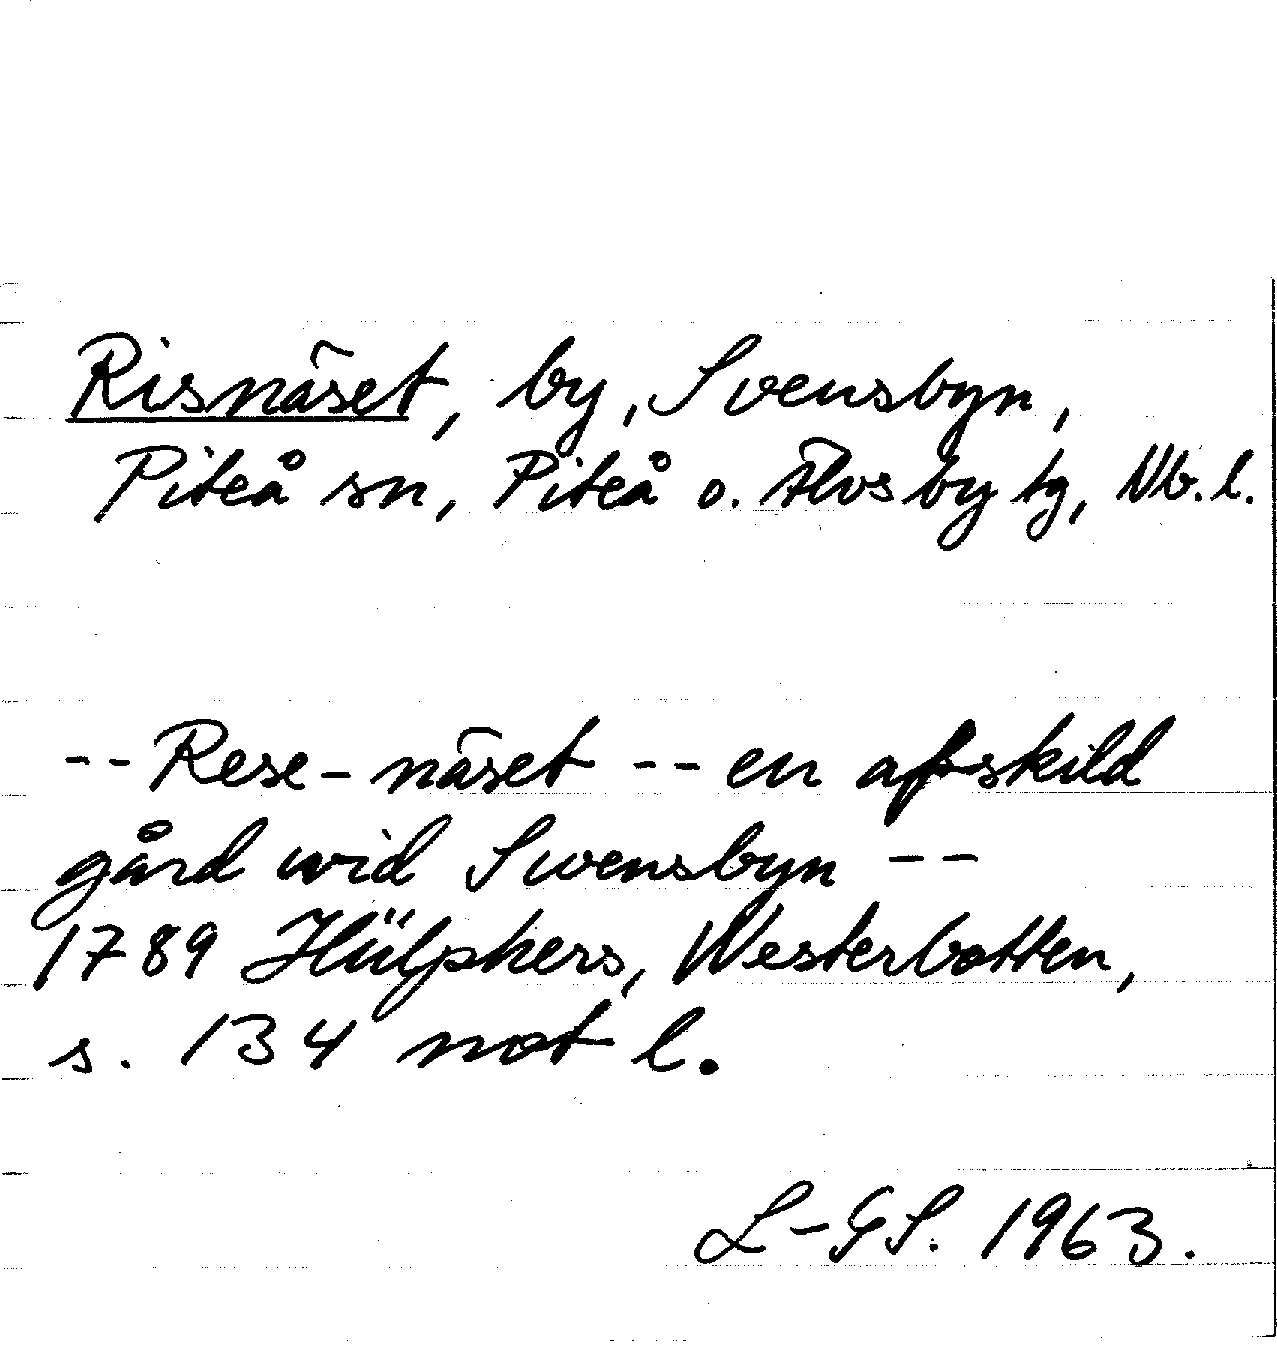 Risnäset, by, Svensbyn,
Piteå sn, Piteå o. Älvsby tg, Nb. l.
-- Rese-näset -- en afskild
gård wid Swensbyn --
1789 Hülphers, Westerbotten,
s. 134 not l.
L-GS. 1963.